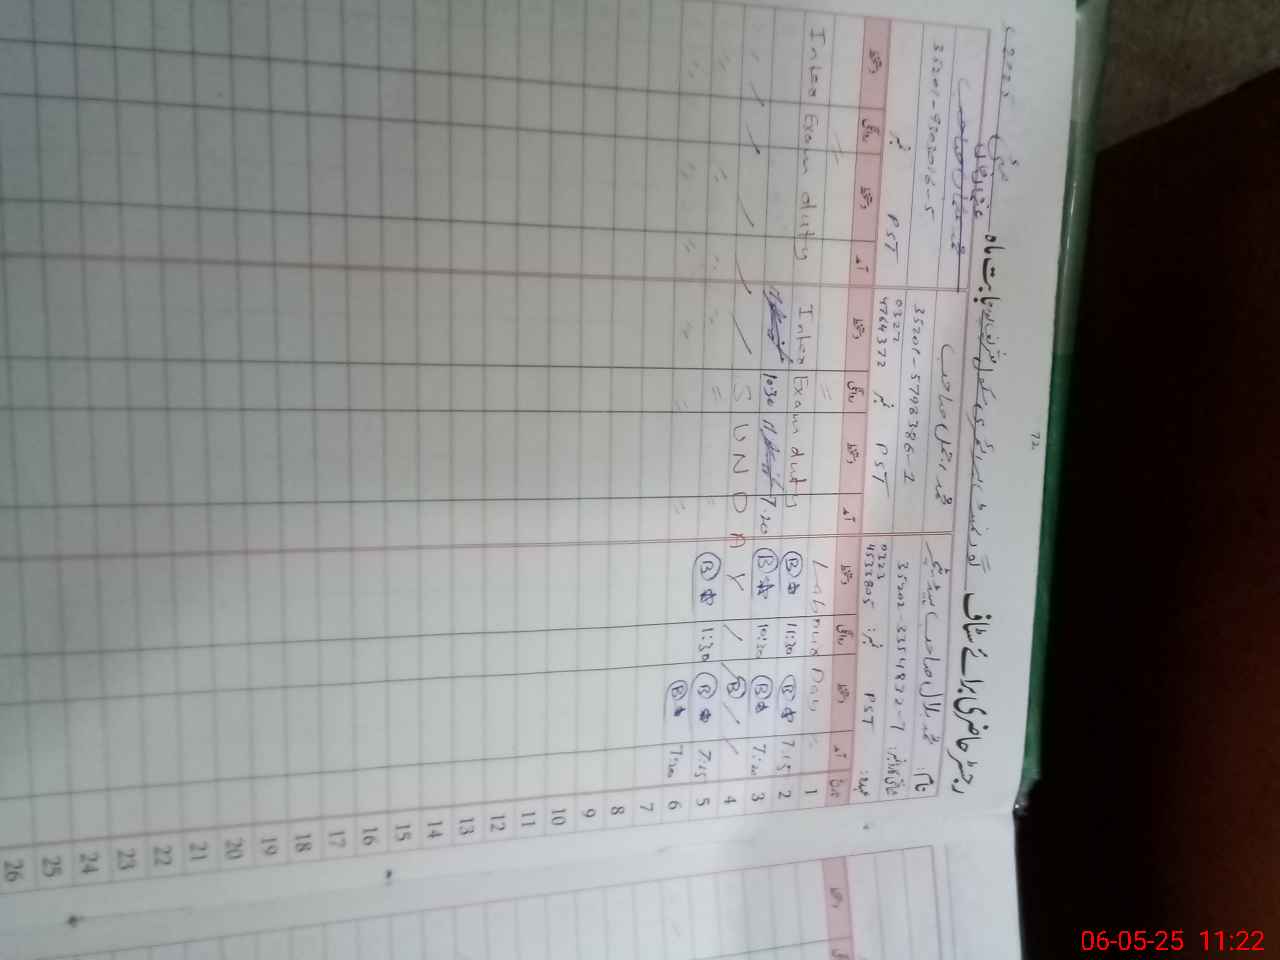 72
رجسٹر حاضری برائے سٹاف
بابت ماہ مئی 2025
نام: محمد بلال صاحب
شناختی کارڈ نمبر: 35202-3354832-7
0323 4533805
نمبر:
PST
عہدہ:
35201-5798386-1
0327 4764372
نمبر
PST
35201-9303016-5
نمبر
PST
تاریخ آمد دستخط روانگی دستخط آمد دستخط روانگی دستخط آمد دستخط روانگی دستخط
1 Labour Day
2 7:15 B 11:30 B Inter Exam duty Inter Exam duty
3 7:20 B 10:30 B 7.20 10:30
4 B S U N D A Y
5 7:15 B 1:30 B
6 7:20 B
7
8
9
10
11
12
13
14
15
16
17
18
19
20
21
22
23
24
25
26
06-05-25 11:22